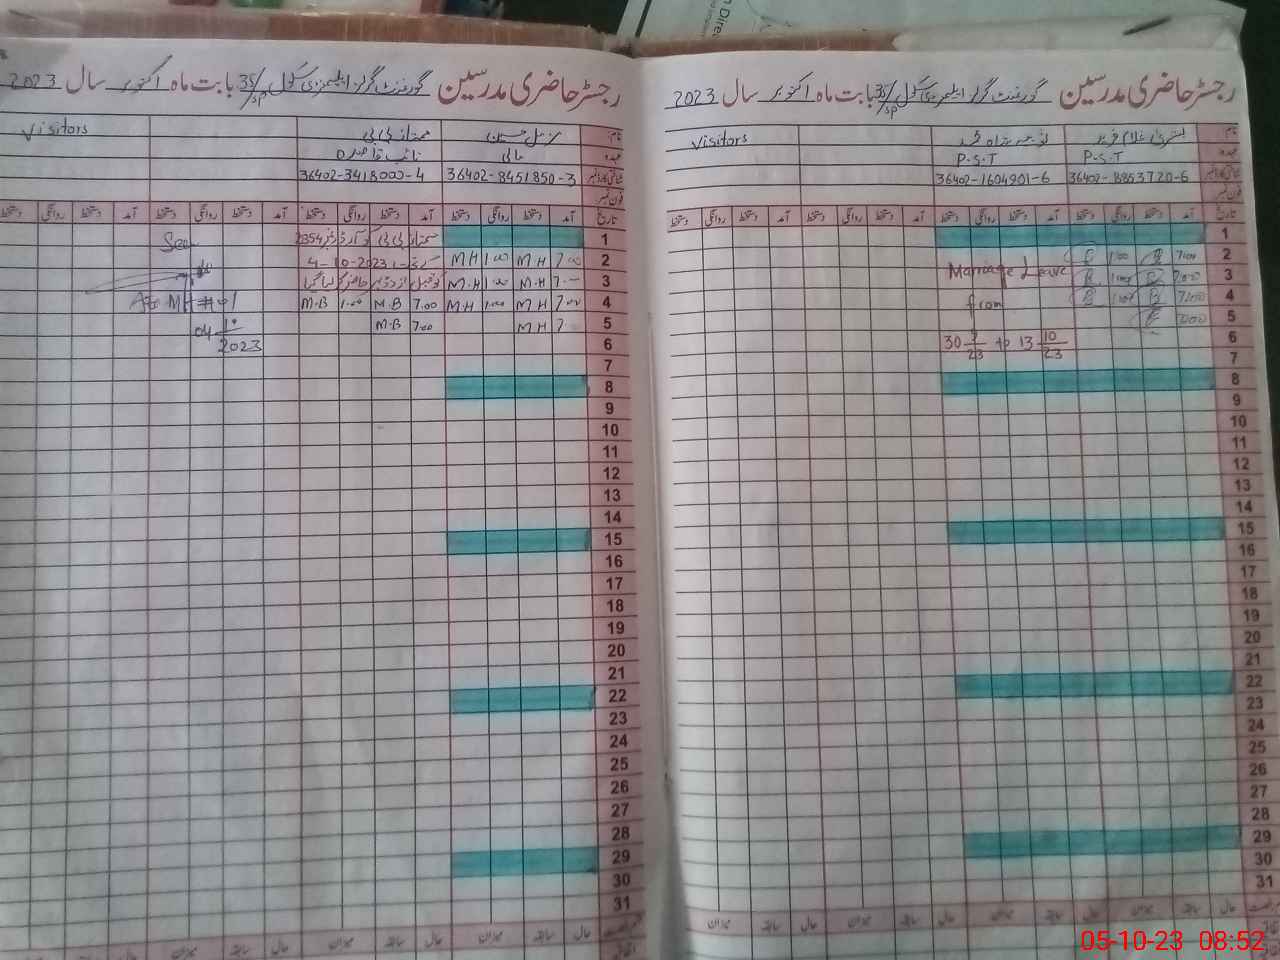 رجسٹر حاضری مدرسین گورنمنٹ گرلز ایلیمنٹری سکول 35/SP بابت ماہ اکتوبر سال 2023
نام
عہدہ
شناختی کارڈ نمبر
فون نمبر
غلام فرید
P.S.T
P.S.T
36402-8863720-6
36402-1604901-6
Visitors
تاریخ آمد دستخط روانگی دستخط آمد دستخط روانگی دستخط آمد دستخط روانگی دستخط آمد دستخط روانگی دستخط
1
2 7:00 1:00
3
4
5
6
7
8
9
10
11
12
13
14
15
16
17
18
19
20
21
22
23
24
25
26
27
28
29
30
31
Marriage Leave
from
30 9/23 to 13 10/23
حال سابقہ میزان حال سابقہ میزان حال سابقہ میزان
05-10-23 08:52
رجسٹر حاضری مدرسین گورنمنٹ گرلز ایلیمنٹری سکول 35/SP بابت ماہ اکتوبر سال 2023
نام
عہدہ
شناختی کارڈ نمبر
فون نمبر
مزمل حسین
مالی
36402-8451850-3
ممتاز بی بی
نائب قاصدہ
36402-3418000-4
Visitors
تاریخ آمد دستخط روانگی دستخط آمد دستخط روانگی دستخط آمد دستخط روانگی دستخط آمد دستخط روانگی دستخط
1 ممتاز بی بی کو آرڈر نمبر 2354
2 7:00 M H 1:00 M H 4-10-2023
3 7:00 M.H 1:00 M.H
4 7:00 M H 1:00 M.H 7.00 M.B 1:00 M.B
5 7: M H 7:00 M.B
6
7
8
9
10
11
12
13
14
15
16
17
18
19
20
21
22
23
24
25
26
27
28
29
30
31
See
04 10/2023
حال سابقہ میزان حال سابقہ میزان حال سابقہ میزان